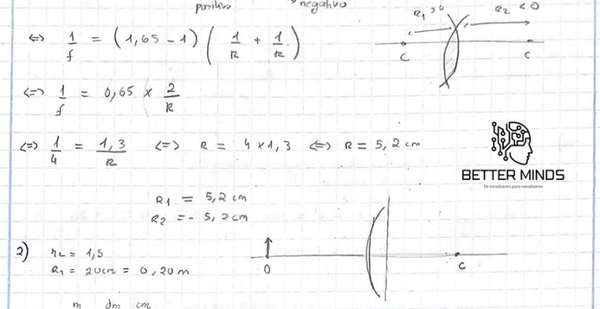 positivo negativo
R₁ > 0 R₂ < 0
⇔ 1/f = (1,65 - 1) (1/R + 1/R)
C C
⇔ 1/f = 0,65 × 2/R
⇔ 1/4 = 1,3/R ⇔ R = 4 × 1,3 ⇔ R = 5,2 cm
BETTER MINDS
De estudiantes para estudiantes
R₁ = 5,2 cm
R₂ = - 5,2 cm
2) nL = 1,5
R₁ = 20 cm = 0,20 m
O C
m dm cm